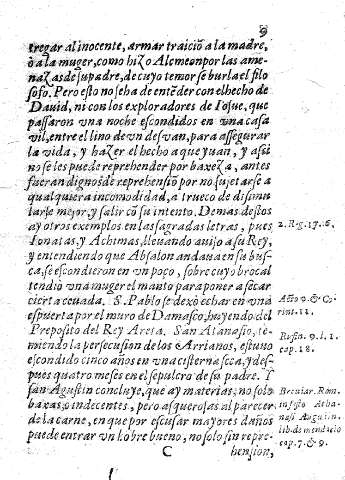 9
tregar al inocente, armar traiciõ a la madre,
ò a la muger, como hizo Alcmeon por las ame-
nazas de su padre, de cuyo temor se burla el filo
sofo. Pero esto no se ha de entẽder con el hecho de
Dauid, ni con los exploradores de Iosue, que
passaron vna noche escondidos en vna casa
vil, entre el lino de vn desvan, para assegurar
la vida, y hazer el hecho a que yuan, y assi
no se les puede reprehender por baxeza, antes
fueran dignos de reprehensiõ por no sujetarse a
qualquiera incomodidad, a trueco de dissimu
larse mejor, y salir cõ su intento. Demas destos
ay otros exemplos en las sagradas letras, pues
Ionatas, y Achimas, lleuando auiso a su Rey,
y entendiendo que Absalon andaua en su bus-
ca, se escondieron en vn poço, sobre cuyo brocal
tendiò vna muger el manto para poner a secar
cierta ceuada. S. Pablo se dexò echar en vna
espuerta por el muro de Damasco, huyendo del
Preposito del Rey Areta. San Atanasio, te-
miendo la persecusion de los Arrianos, estuuo
escondido cinco años en vna cisterna seca, y des-
pues quatro meses en el sepulcro de su padre. I
san Agustin concluye, que ay materias, no solo
baxas, o indecentes, pero asquerosas al parecer
de la carne, en que por escusar mayores daños
puede entrar vn hõbre bueno, no solo sin repre-
C hension,
2. Rg. 17. 6.
Año 9. & Co
rint. 11.
Rufin. 9. l. 1.
cap. 18.
Breuiar. Rom.
in festo Atha-
nasi August.
lib. de mendacio
cap. 7. & 9.